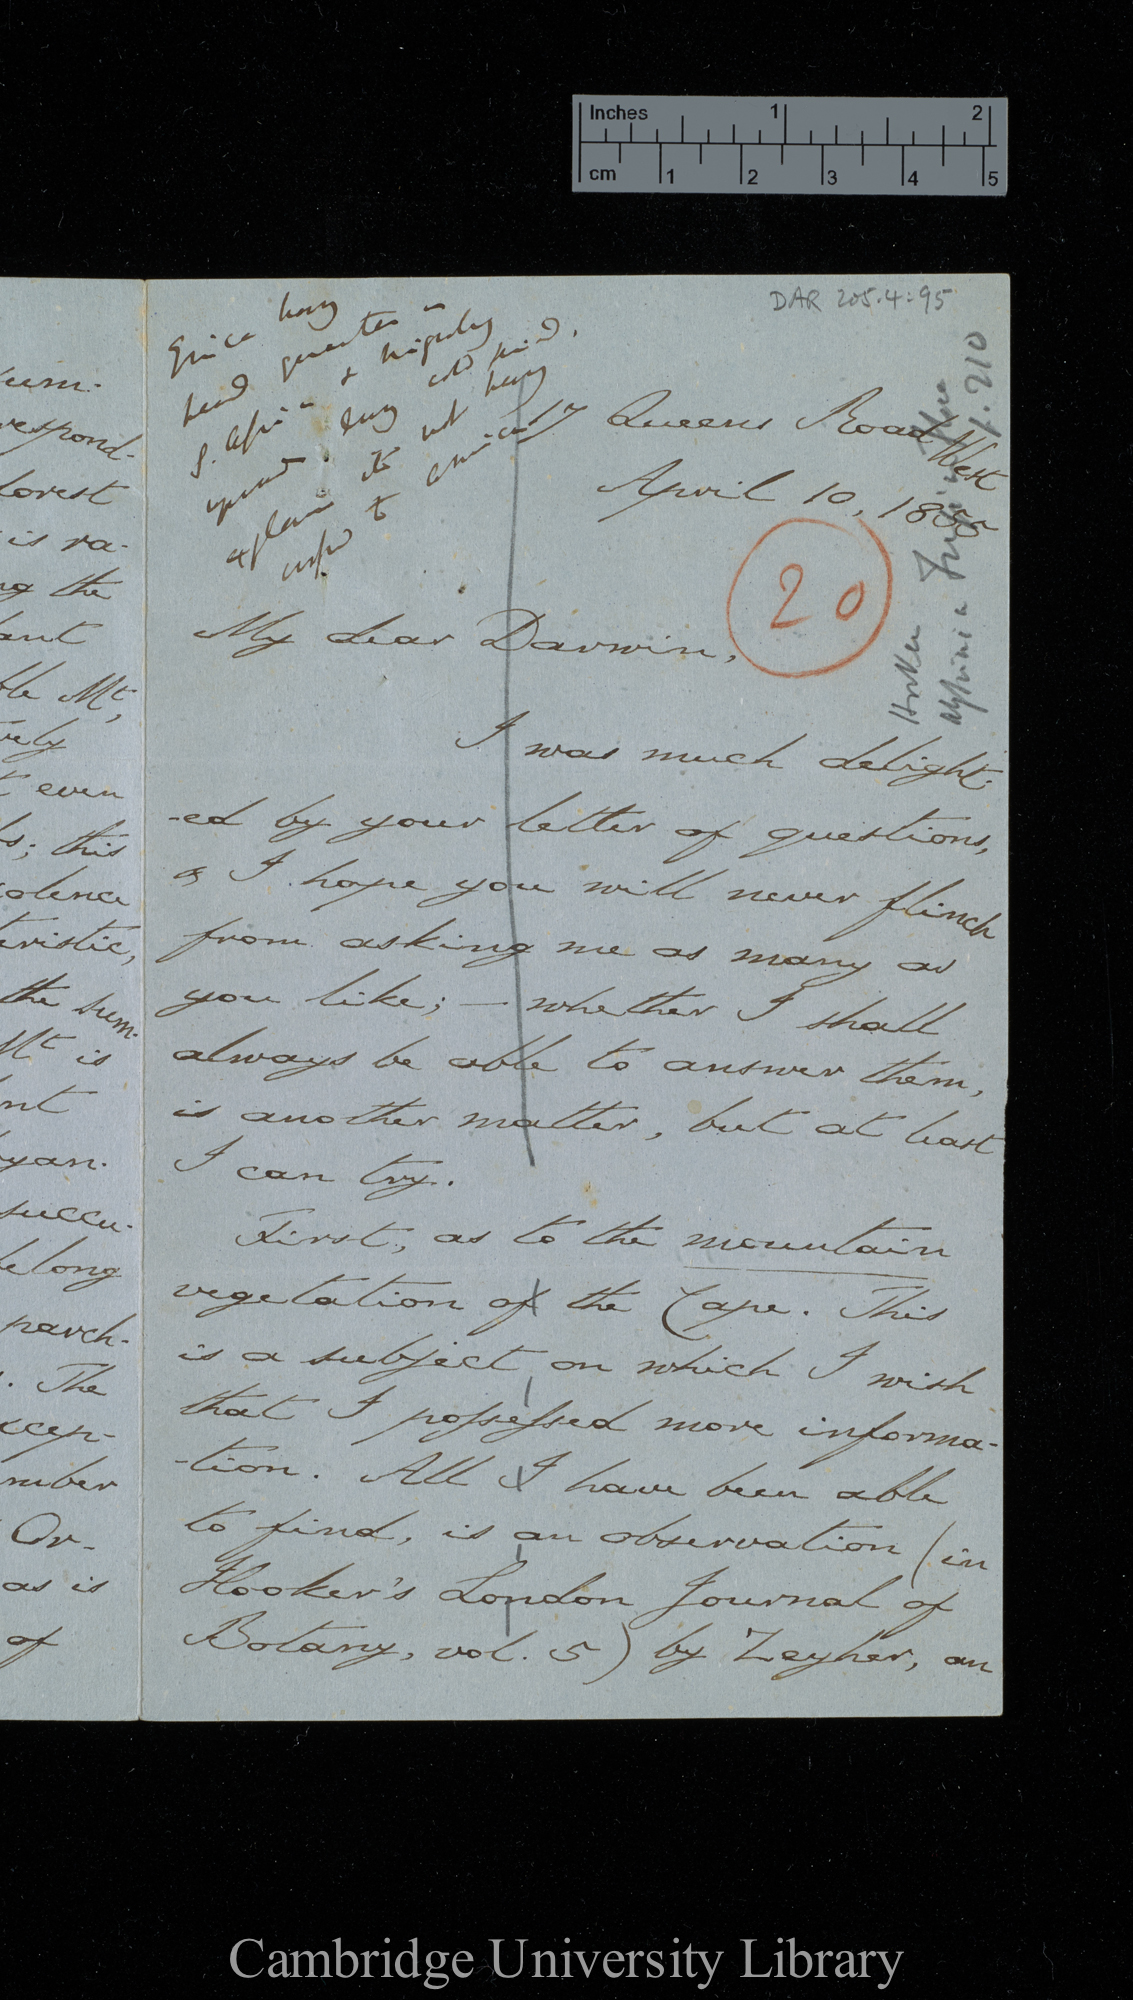 Inches 1 2
cm 1 2 3 4 5
DAR 205.4:95
Erica having
head quarters in
S. Africa & migrating
during cold period.
explains its not having
to America
17 Queens Road West
April 10, 1856
20
Hooker
p. 210
My dear Darwin,
I was much delight-
-ed by your letter of questions,
& I hope you will never flinch
from asking me as many as
you like; — whether I shall
always be able to answer them,
is another matter, but at least
I can try.
First, as to the mountain
vegetation of the Cape. This
is a subject on which I wish
that I possessed more informa-
-tion. All I have been able
to find, is an observation (in
Hooker's London Journal of
Botany, vol. 5) by Zeyher, an
respond-
forest
is ra-
the
ble Mt,
even
this
the sum-
Mt is
succu-
belong
parch-
The
excep-
Or-
as is
of
Cambridge University Library